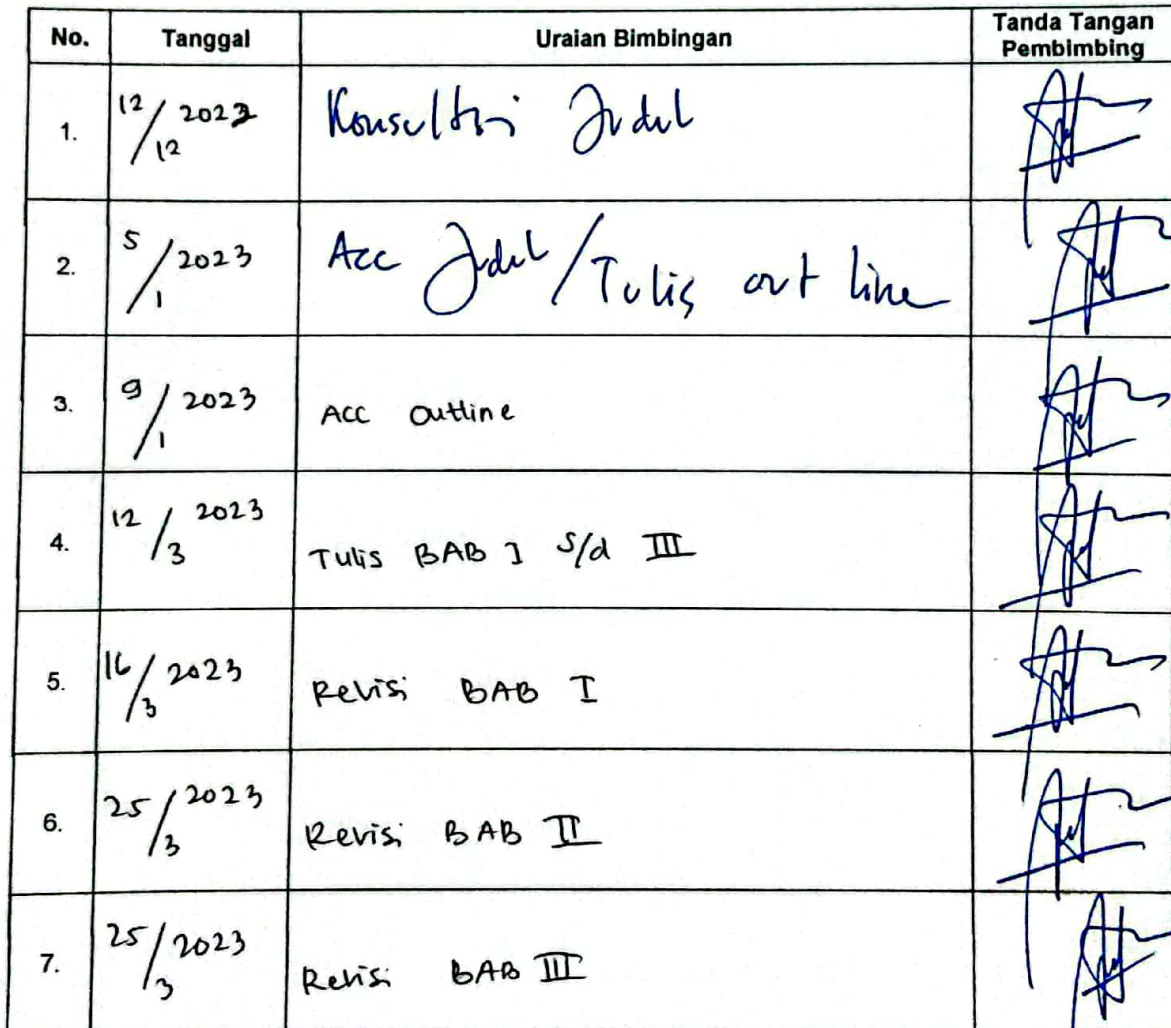 No. Tanggal Uraian Bimbingan Tanda Tangan
Pembimbing
1. 12/12 2022 Konsultasi Judul
2. 5/1 2023 Acc Judul/Tulis out line
3. 9/1 2023 Acc outline
4. 12/3 2023 Tulis BAB I s/d III
5. 16/3 2023 Revisi BAB I
6. 25/3 2023 Revisi BAB II
7. 25/3 2023 Revisi BAB III